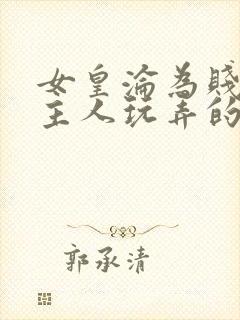 女皇淪為賤
主人玩弄的
郭承清